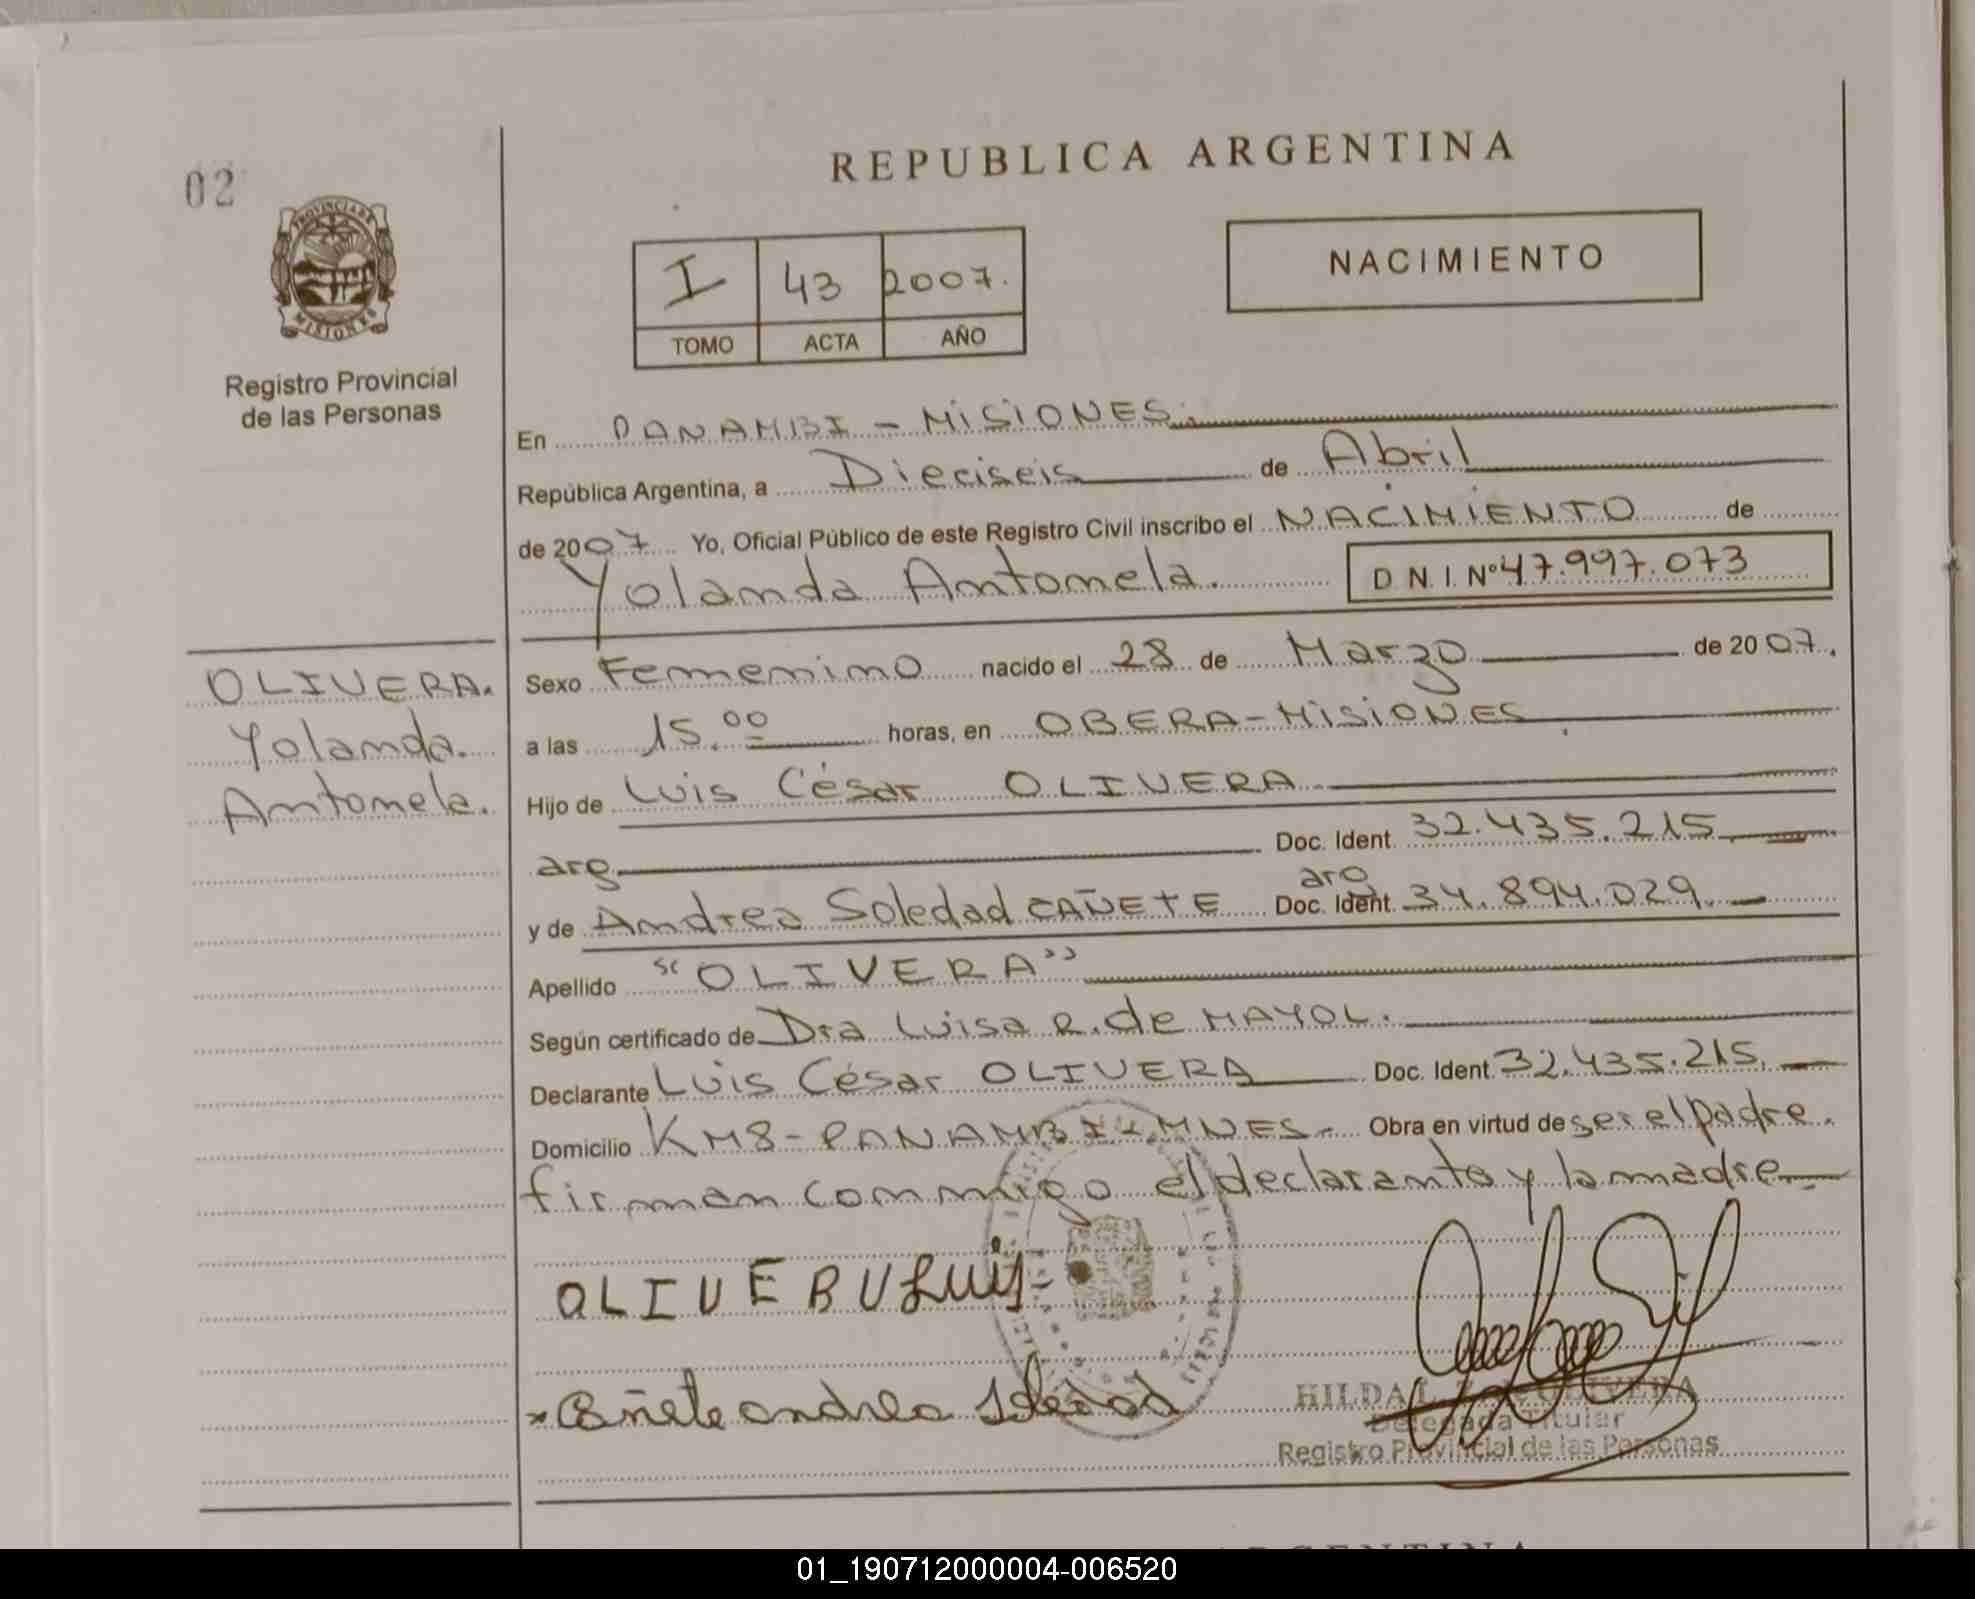 02
REPUBLICA ARGENTINA
PROVINCIA DE
MISIONES
Registro Provincial
de las Personas
I 43 2007.
TOMO ACTA AÑO
NACIMIENTO
En PANAMBI - MISIONES.
República Argentina, a Dieciseis de Abril
de 2007 Yo, Oficial Público de este Registro Civil inscribo el NACIMIENTO de
Yolanda Antonela. D N. I. Nº 47.997.073
OLIVERA.
Yolanda.
Antonela.
Sexo Femenino nacido el 28 de Marzo de 2007.
a las 15.00 horas, en OBERA-MISIONES
Hijo de Luis César OLIVERA
arg. Doc. Ident. 32.435.215
arg
y de Andrea Soledad CAÑETE Doc. Ident. 34.894.029.
Apellido "OLIVERA"
Según certificado de Dra Luisa R. de MAYOL.
Declarante Luis César OLIVERA Doc. Ident. 32.435.215.
Domicilio KM8-PANAMBI-MNES- Obra en virtud de ser el padre.
firman conmigo el declarante y la madre
OLIVERU Luis
Cañete andrea Soledad
HILDA OLIVERA
Delegada Titular
Registro Provincial de las Personas
ARGENTINA
01_190712000004-006520